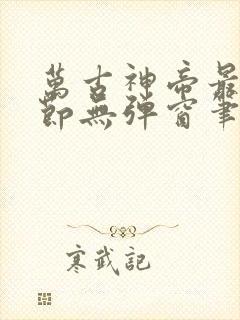 萬古神帝最
節無彈窗筆
寒武記